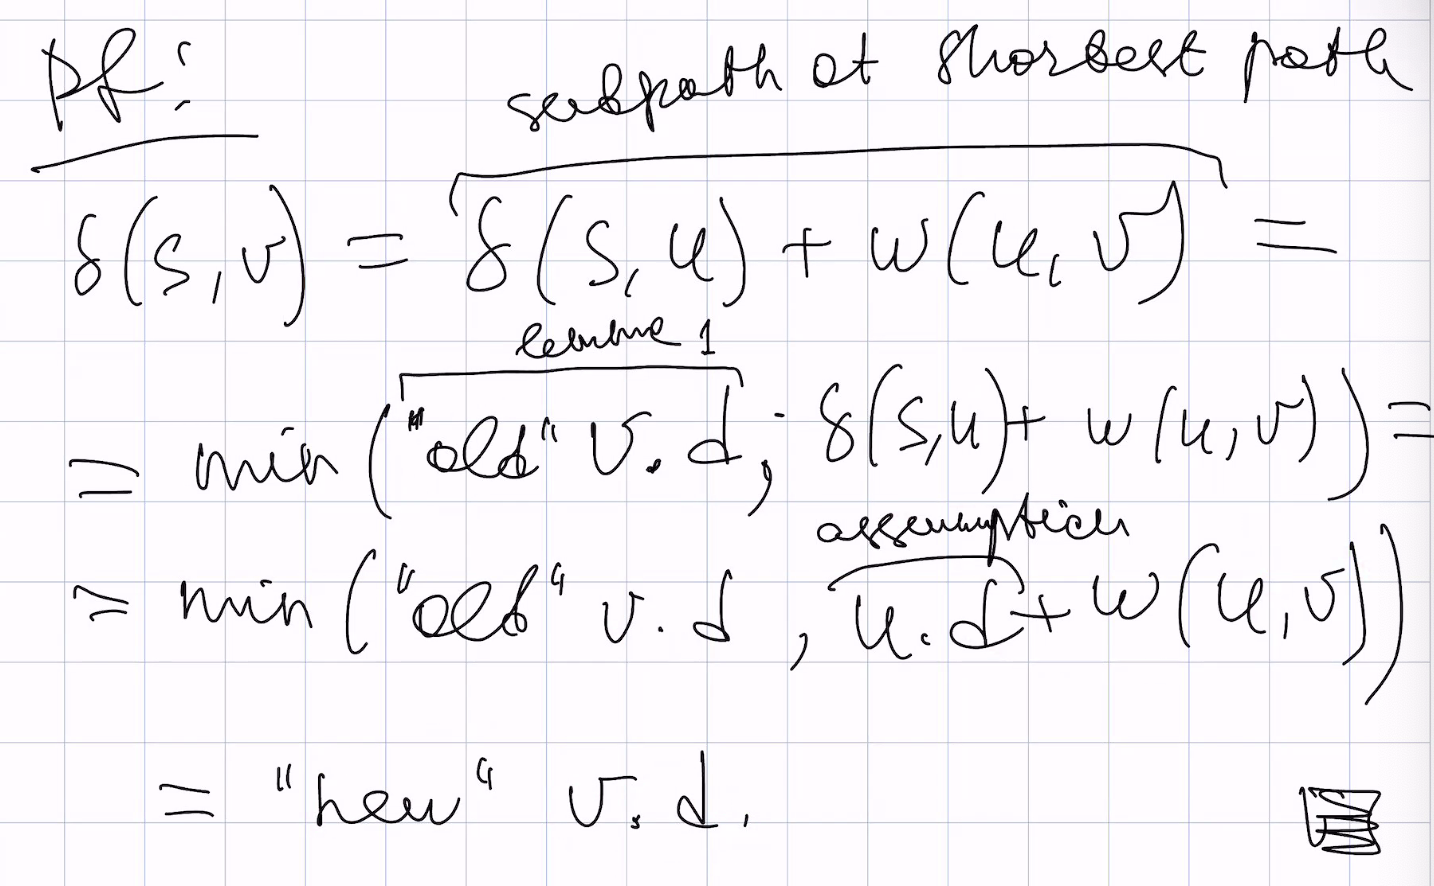 Pf:
subpath of shortest path
δ(s,v) = δ(s,u) + w(u,v) =
lemma 1
= min("old" v.d, δ(s,u) + w(u,v)) =
assumption
= min("old" v.d, u.d + w(u,v))
= "new" v.d.